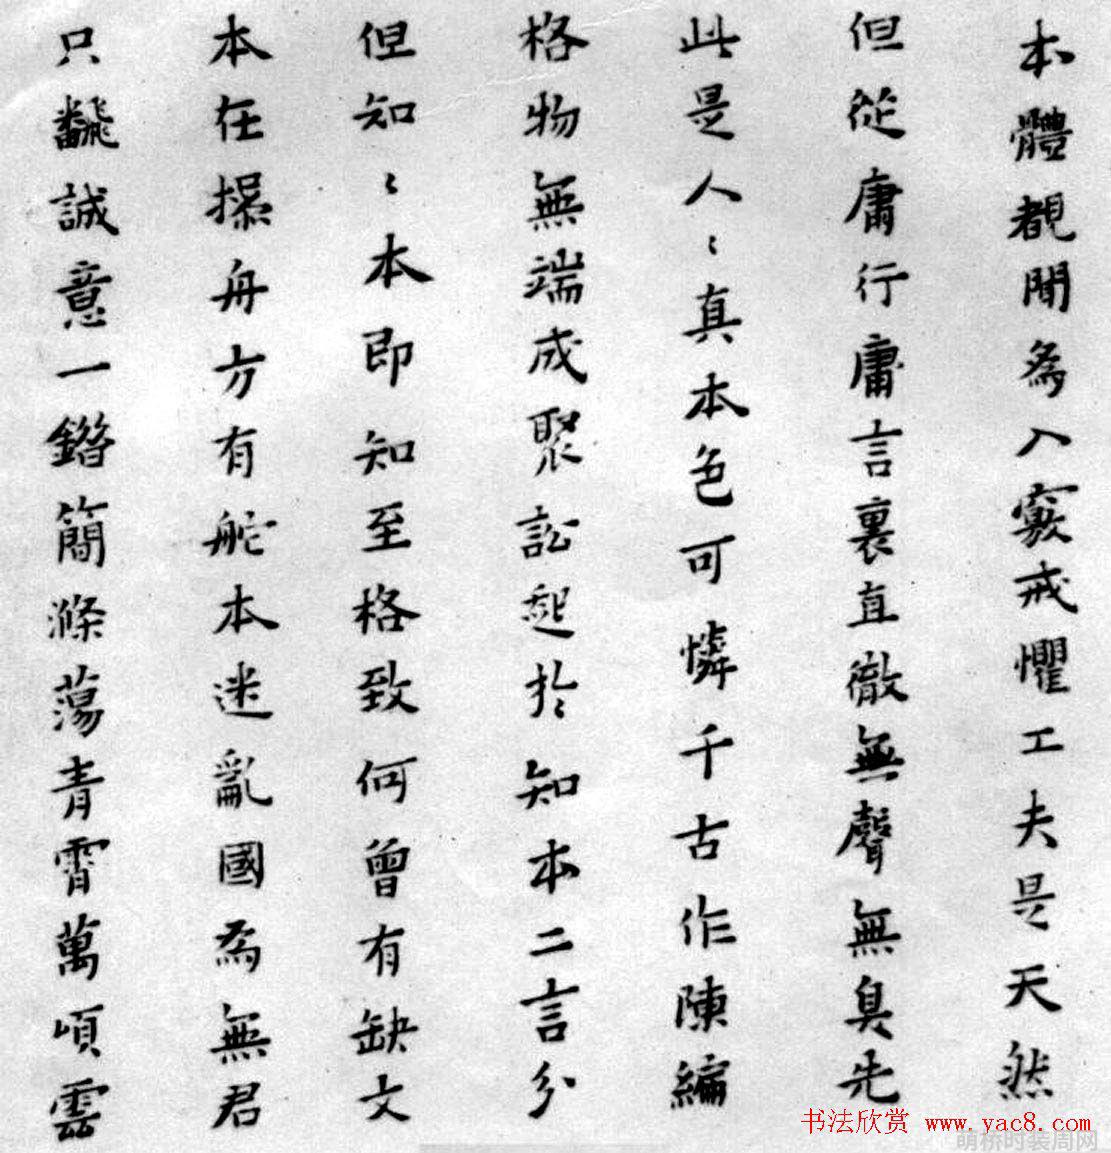 本體覩聞為入竅戒懼工夫是天然
但從庸行庸言裏直徹無聲無臭先
此是人〻真本色可憐千古作陳編
格物無端成聚訟起於知本二言分
但知〻本即知至格致何曾有缺文
本在操舟方有舵本迷亂國為無君
只飜誠意一錯簡滌蕩青霄萬頃雲
书法欣赏 www.yac8.com
萌桥时装周网